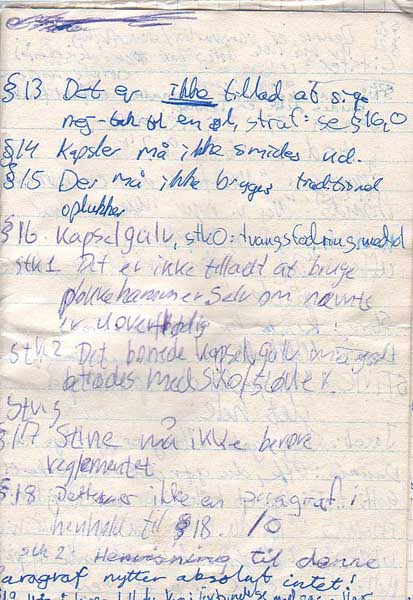 §13 Det er ikke tillad at sige
nej-tak til en øl, straf: se §16,0
§14 Kapsler må ikke smides ud.
§15 Der må ikke bruges traditional
oplukker
§16. Kapselgulv, stk0: tvangsfodring med øl
Stk1 Det er ikke tilladt at bruge
hammer selv om nævnte
er
stk2. Det bonede kapselgulv må godt
betrædes med sko/støvler.
Stk3
§17 Stine må ikke berøre
reglementet
§.18 Dette er ikke en paragraf i
henhold til §18. 10
stk2 Henvisning til denne
aragraf nytter absolut intet!